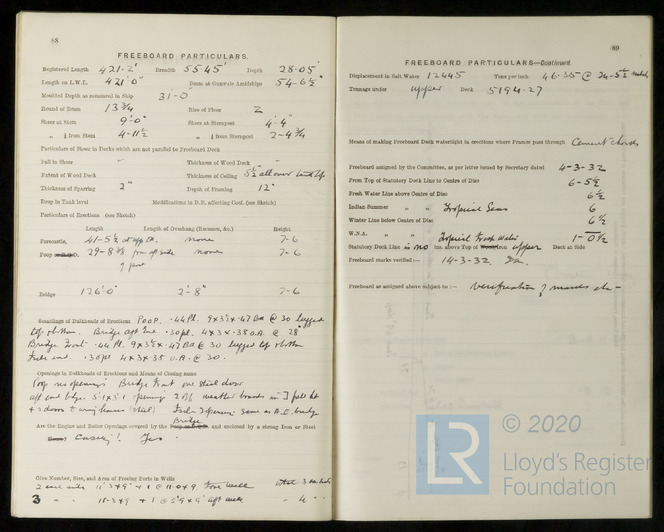 68
FREEBOARD PARTICULARS.
Registered Length 421·2' Breadth 55·45' Depth 28·05'
Length on L.W.L. 421'0" Beam at Gunwale Amidships 54-6½"
Moulded Depth as measured in Ship 31'-0"
Round of Beam 13¾ Rise of Floor 2
Sheer at Stem 9'-0" Sheer at Sternpost 4'-4"
" ⅛ from Stem 4-11½ " ⅛ from Sternpost 2-4¾
Particulars of Sheer in Decks which are not parallel to Freeboard Deck
Fall in Sheer " Thickness of Wood Deck "
Extent of Wood Deck Thickness of Ceiling 5½ all over tank top
Thickness of Sparring 2" Depth of Framing 12"
Drop in Tank level Modifications in D.B. affecting Coef. (see Sketch)
Particulars of Erections (see Sketch)
Length Length of Overhang (Recesses, &c.) Height
Forecastle, 41-5½ none 7-6
Poop 29-8 none 7-6
Bridge 126'0" 2'-8" 7-6
Scantlings of Bulkheads of Erections Poop. ·44 pl. 9×3½×·47 BA @ 30 lugged
top & bottom. Bridge aft end ·30 pl. 4×3×·35 O.A. @ 28"
Bridge Front ·44 pl. 9×3½×·47 BA @ 30 lugged top & bottom
Fcsle end. ·30 pl 4×3×35 O.A. @ 30.
Openings in Bulkheads of Erections and Means of Closing same
Poop no openings Bridge Front one steel door
aft end bdge. 5·1×3·1 openings 2 weather boards in
Are the Engine and Boiler Openings covered by the Bridge and enclosed by a strong Iron or Steel
Casing? Yes.
Give Number, Size, and Area of Freeing Ports in Wells
2 each side 11·3×9" + 1 @ 11·0×9 Fore well
3 " " 11-3×9 + 1 @ 5'9×9" aft well - 4 "
69
FREEBOARD PARTICULARS—Continued.
Displacement in Salt Water 12445 Tons per inch 46·35 @ 24-5½
Tonnage under upper Deck 5194·27
Means of making Freeboard Deck watertight in erections where Frames pass through Cement chocks
Freeboard assigned by the Committee, as per letter issued by Secretary dated 4-3-32
From Top of Statutory Deck Line to Centre of Disc 6-5½
Fresh Water Line above Centre of Disc 6½
Indian Summer " " Tropical Seas 6
Winter Line below Centre of Disc 6½
W.N.A. " " Tropical Fresh Water 1-0½
Statutory Deck Line is no ins. above Top of upper Deck at Side
Freeboard marks verified:— 14-3-32
Freeboard as assigned above subject to:— Verification of marks &c-
LR
© 2020
Lloyd's Register
Foundation